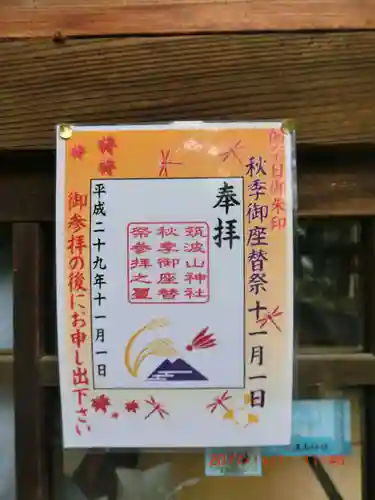 例祭日御朱印
秋季御座替祭十一月一日
奉拝
筑波山神社
秋季御座替
祭参拝之璽
平成二十九年十一月一日
御参拝の後にお申し出下さい